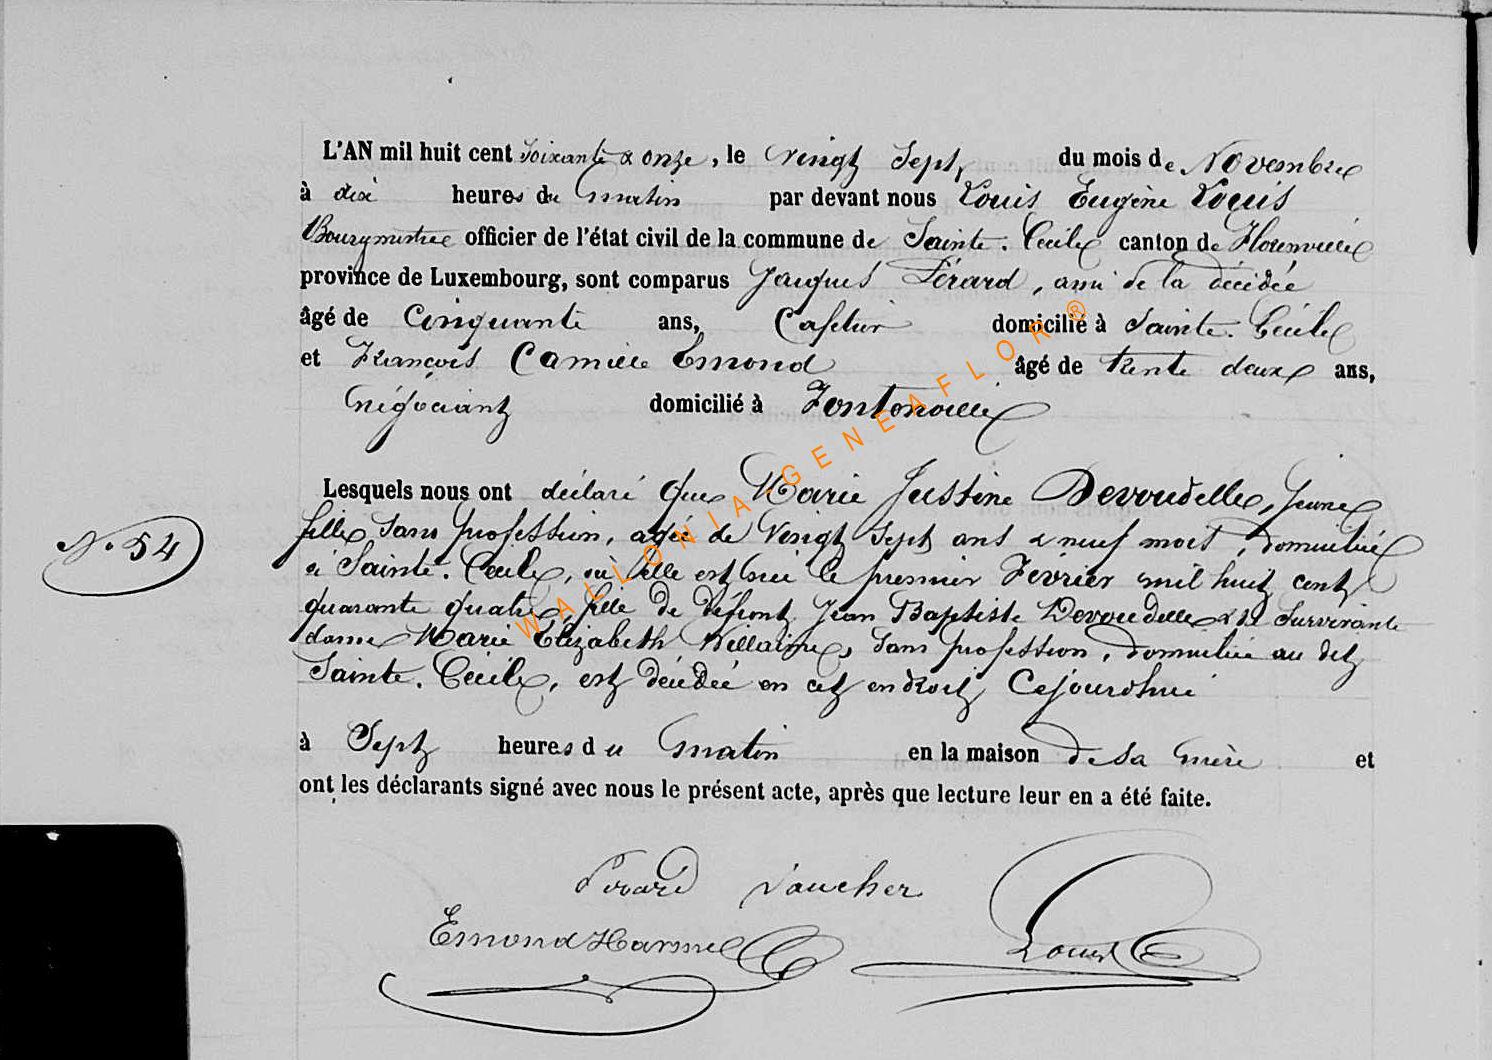 L'AN mil huit cent Soixante & onze, le vingt Sept du mois de Novembre
à dix heures du matin par devant nous Louis Eugène Louis
Bourgmestre officier de l'état civil de la commune de Sainte. Cécile canton de Florenville
province de Luxembourg, sont comparus Jacques Pérard, ami de la décédée
âgé de Cinquante ans, Cafetier domicilié à Sainte. Cécile
et François Camille Emond âgé de trente deux ans,
négociant domicilié à Fontenoille
Lesquels nous ont déclaré que Marie Justine Devoudelle, jeune
N. 54
fille sans profession, agée de Vingt Sept ans & neuf mois, domiciliée
à Sainte. Cécile, où elle est née le premier Février mil huit cent
quarante quatre, fille de défunt Jean Baptiste Devoudelle & de Survivante
dame Marie Elizabeth Willaime, sans profession, domiciliée au dit
Sainte. Cécile, est décédée en cet endroit Cejourdhui
à Sept heures du matin en la maison de sa mère et
ont les déclarants signé avec nous le présent acte, après que lecture leur en a été faite.
Vaucher
Emond Harmel Louis
WALLONIA-GENEAFLOR®